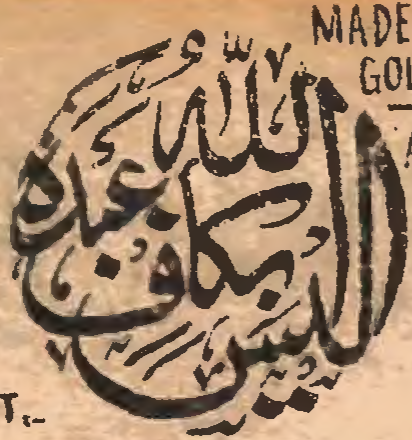 MADE
GOL
أليس الله بكاف عبده
T.-